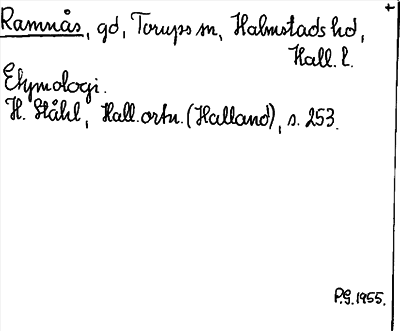 Ramnås, gd, Torups sn, Halmstads hd,
Hall. l.
Etymologi.
H. Ståhl, Hall. ortn. (Halland), s. 253.
P.G. 1955.